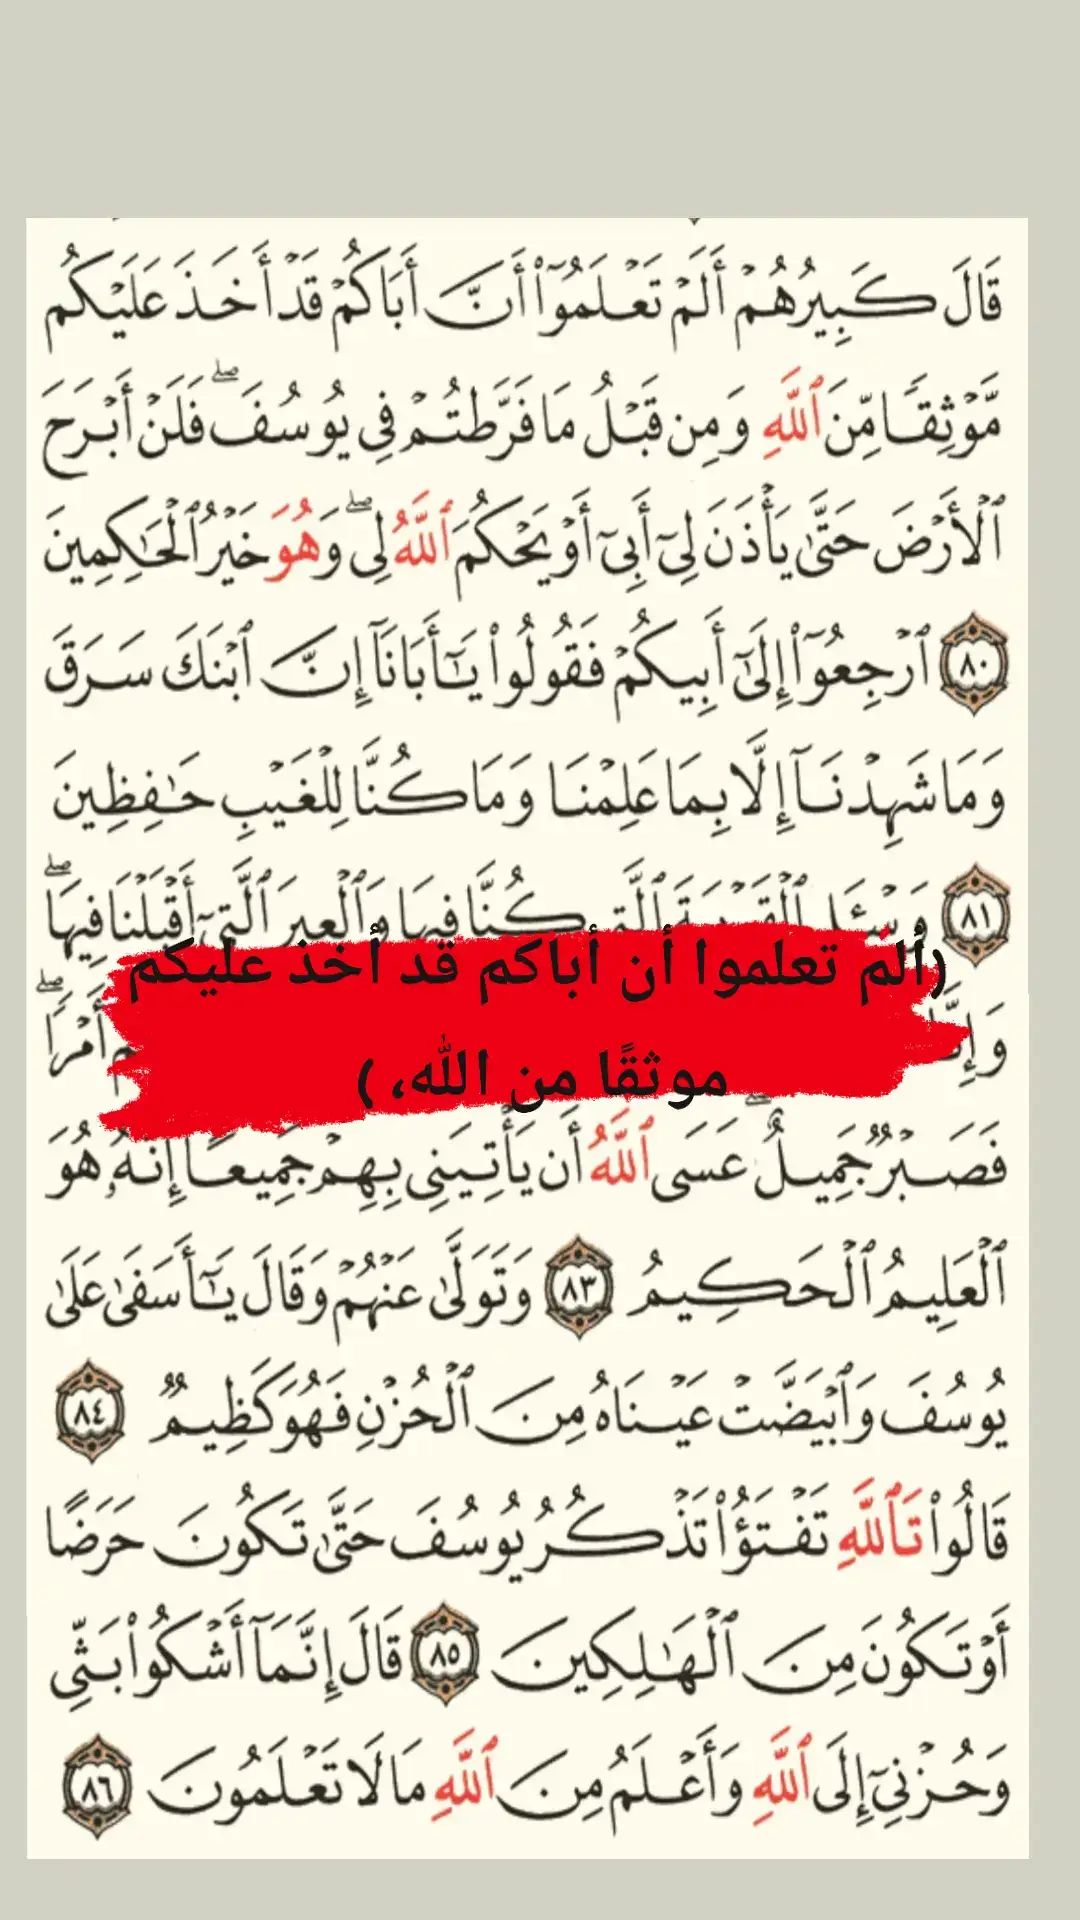 قَالَ كَبِيرُهُمْ أَلَمْ تَعْلَمُوٓا۟ أَنَّ أَبَاكُمْ قَدْ أَخَذَ عَلَيْكُم
مَّوْثِقًا مِّنَ ٱللَّهِ وَمِن قَبْلُ مَا فَرَّطتُمْ فِى يُوسُفَ ۖ فَلَنْ أَبْرَحَ
ٱلْأَرْضَ حَتَّىٰ يَأْذَنَ لِىٓ أَبِىٓ أَوْ يَحْكُمَ ٱللَّهُ لِى ۖ وَهُوَ خَيْرُ ٱلْحَـٰكِمِينَ
٨٠ ٱرْجِعُوٓا۟ إِلَىٰٓ أَبِيكُمْ فَقُولُوا۟ يَـٰٓأَبَانَآ إِنَّ ٱبْنَكَ سَرَقَ
وَمَا شَهِدْنَآ إِلَّا بِمَا عَلِمْنَا وَمَا كُنَّا لِلْغَيْبِ حَـٰفِظِينَ
٨١ وَسْـَٔلِ ٱلْقَرْيَةَ ٱلَّتِى كُنَّا فِيهَا وَٱلْعِيرَ ٱلَّتِىٓ أَقْبَلْنَا فِيهَا ۖ
(ألم تعلموا أن أباكم قد أخذ عليكم
موثقًا من الله، )
أَمْرًا ۖ
فَصَبْرٌ جَمِيلٌ ۖ عَسَى ٱللَّهُ أَن يَأْتِيَنِى بِهِمْ جَمِيعًا ۚ إِنَّهُۥ هُوَ
ٱلْعَلِيمُ ٱلْحَكِيمُ ٨٣ وَتَوَلَّىٰ عَنْهُمْ وَقَالَ يَـٰٓأَسَفَىٰ عَلَىٰ
يُوسُفَ وَٱبْيَضَّتْ عَيْنَاهُ مِنَ ٱلْحُزْنِ فَهُوَ كَظِيمٌ ٨٤
قَالُوا۟ تَٱللَّهِ تَفْتَؤُا۟ تَذْكُرُ يُوسُفَ حَتَّىٰ تَكُونَ حَرَضًا
أَوْ تَكُونَ مِنَ ٱلْهَـٰلِكِينَ ٨٥ قَالَ إِنَّمَآ أَشْكُوا۟ بَثِّى
وَحُزْنِىٓ إِلَى ٱللَّهِ وَأَعْلَمُ مِنَ ٱللَّهِ مَا لَا تَعْلَمُونَ ٨٦